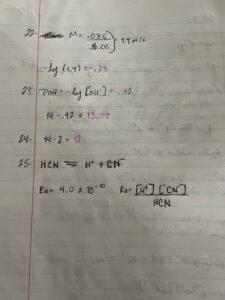 22. M = .085
.05 } 1.7 m/L
-log (1.7) = -.23
23. POH = -log [OH⁻] = .92
14 - .92 = 13.08
24. 14 - 2 = 12
25. HCN ⇌ H⁺ + CN⁻
Ka = 4.0 x 10⁻¹⁰ Ka = [H⁺] [CN⁻]
HCN